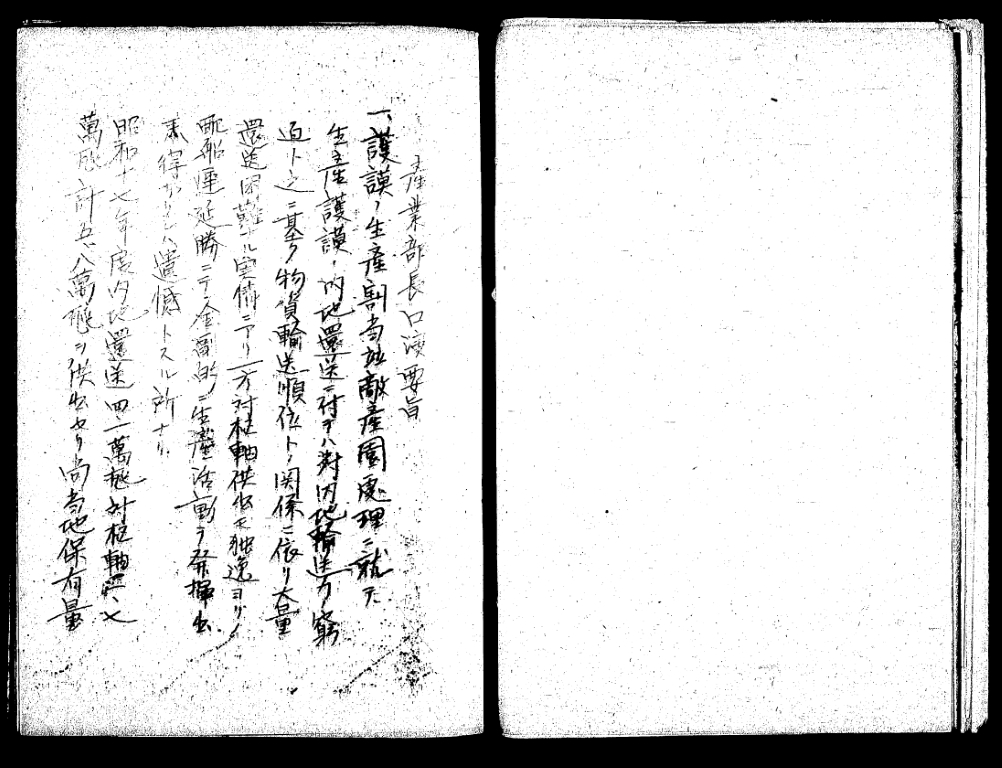 産業部長口演要旨
一、護謨ノ生産割当並敵産園處理ニ就テ
生産護謨ノ内地還送ニ付テハ對内地輸送力ノ窮
迫ト之ニ基ク物資輸送順位トノ関係ニ依リ大量
還送困難ナル実情ニアリ一方対枢軸供出モ独逸ヨリノ
配船遅延勝ニテ全面的ニ生産活動ヲ発揮出
来得ザルハ遺憾トスル所ナリ
昭和十七年度内地還送四、一萬瓲対枢軸一、七
萬瓲計五、八萬瓲ヲ供出セリ尚当地保有量